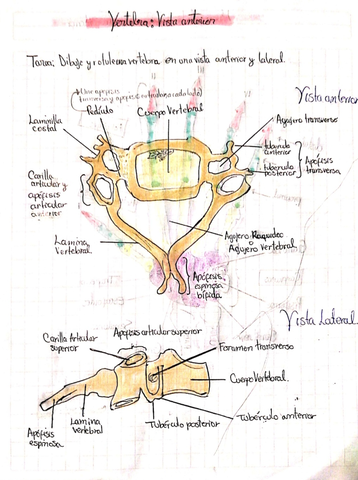 Vertebra: Vista anterior
Tarea: Dibuje y rotule una vertebra en una vista anterior y lateral.
Vista anterior
Laminilla
costal
Pedículo
Cuerpo Vertebral
Agujero transverso
tubérculo
anterior
tubérculo
posterior
Apófisis
transversa
Carilla
articular y
apófisis
articular
anterior
Lamina
Vertebral
Agujero Raquideo
o
Agujero Vertebral
Apófisis
espinosa
bífida
Vista Lateral
Carilla Articular
superior
Apófisis articular superior
Foramen transverso
Cuerpo Vertebral
Tubérculo anterior
Tubérculo posterior
Lamina
Vertebral
Apófisis
espinosa